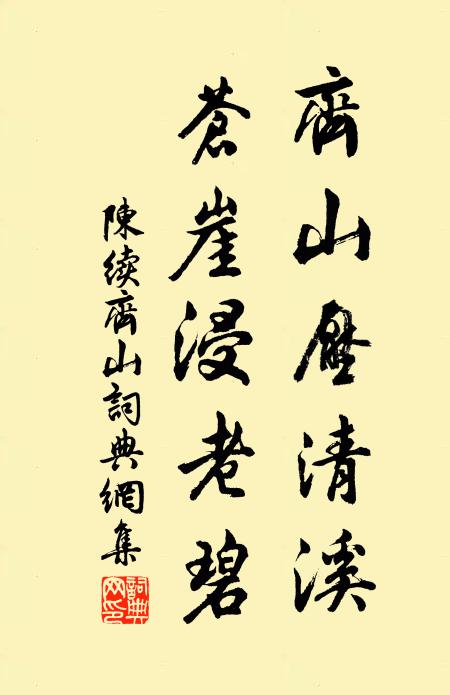 齊山壓清溪
蒼崖浸老碧
陳續齊山詞典網集